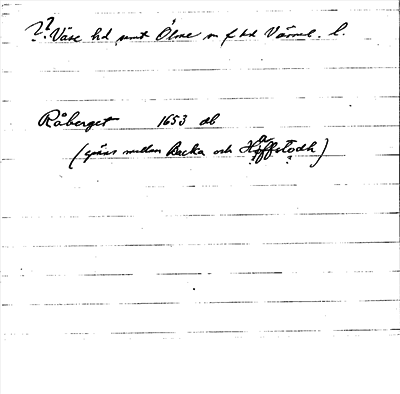 ?? Väse hd samt Ölme m fl hd Värml. l.
Råberget 1653 db
(gräns mellan Backa och Höffstodh)